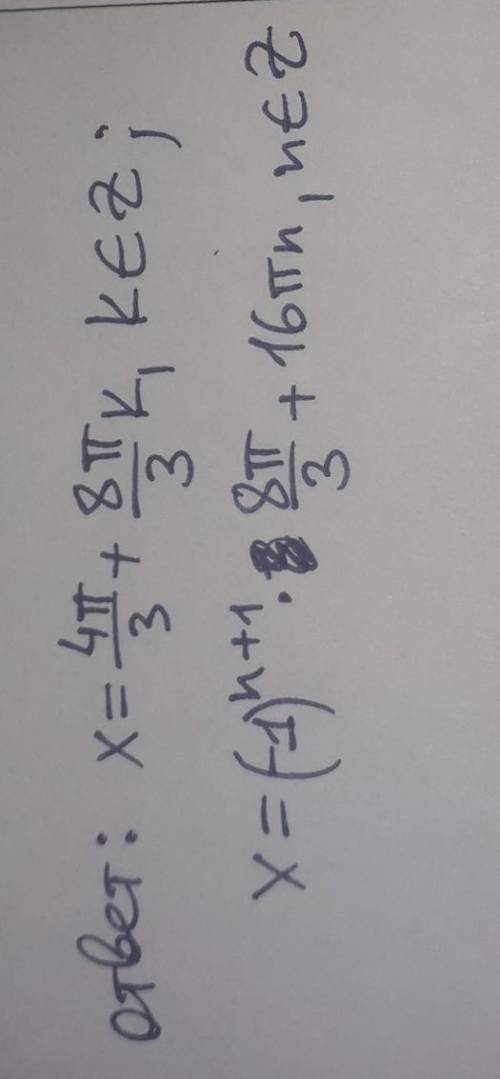 ответ: x = 4π/3 + 8π/3 k, k ∈ Z;
x = (-1)^{n+1} · 8π/3 + 16πn, n ∈ Z